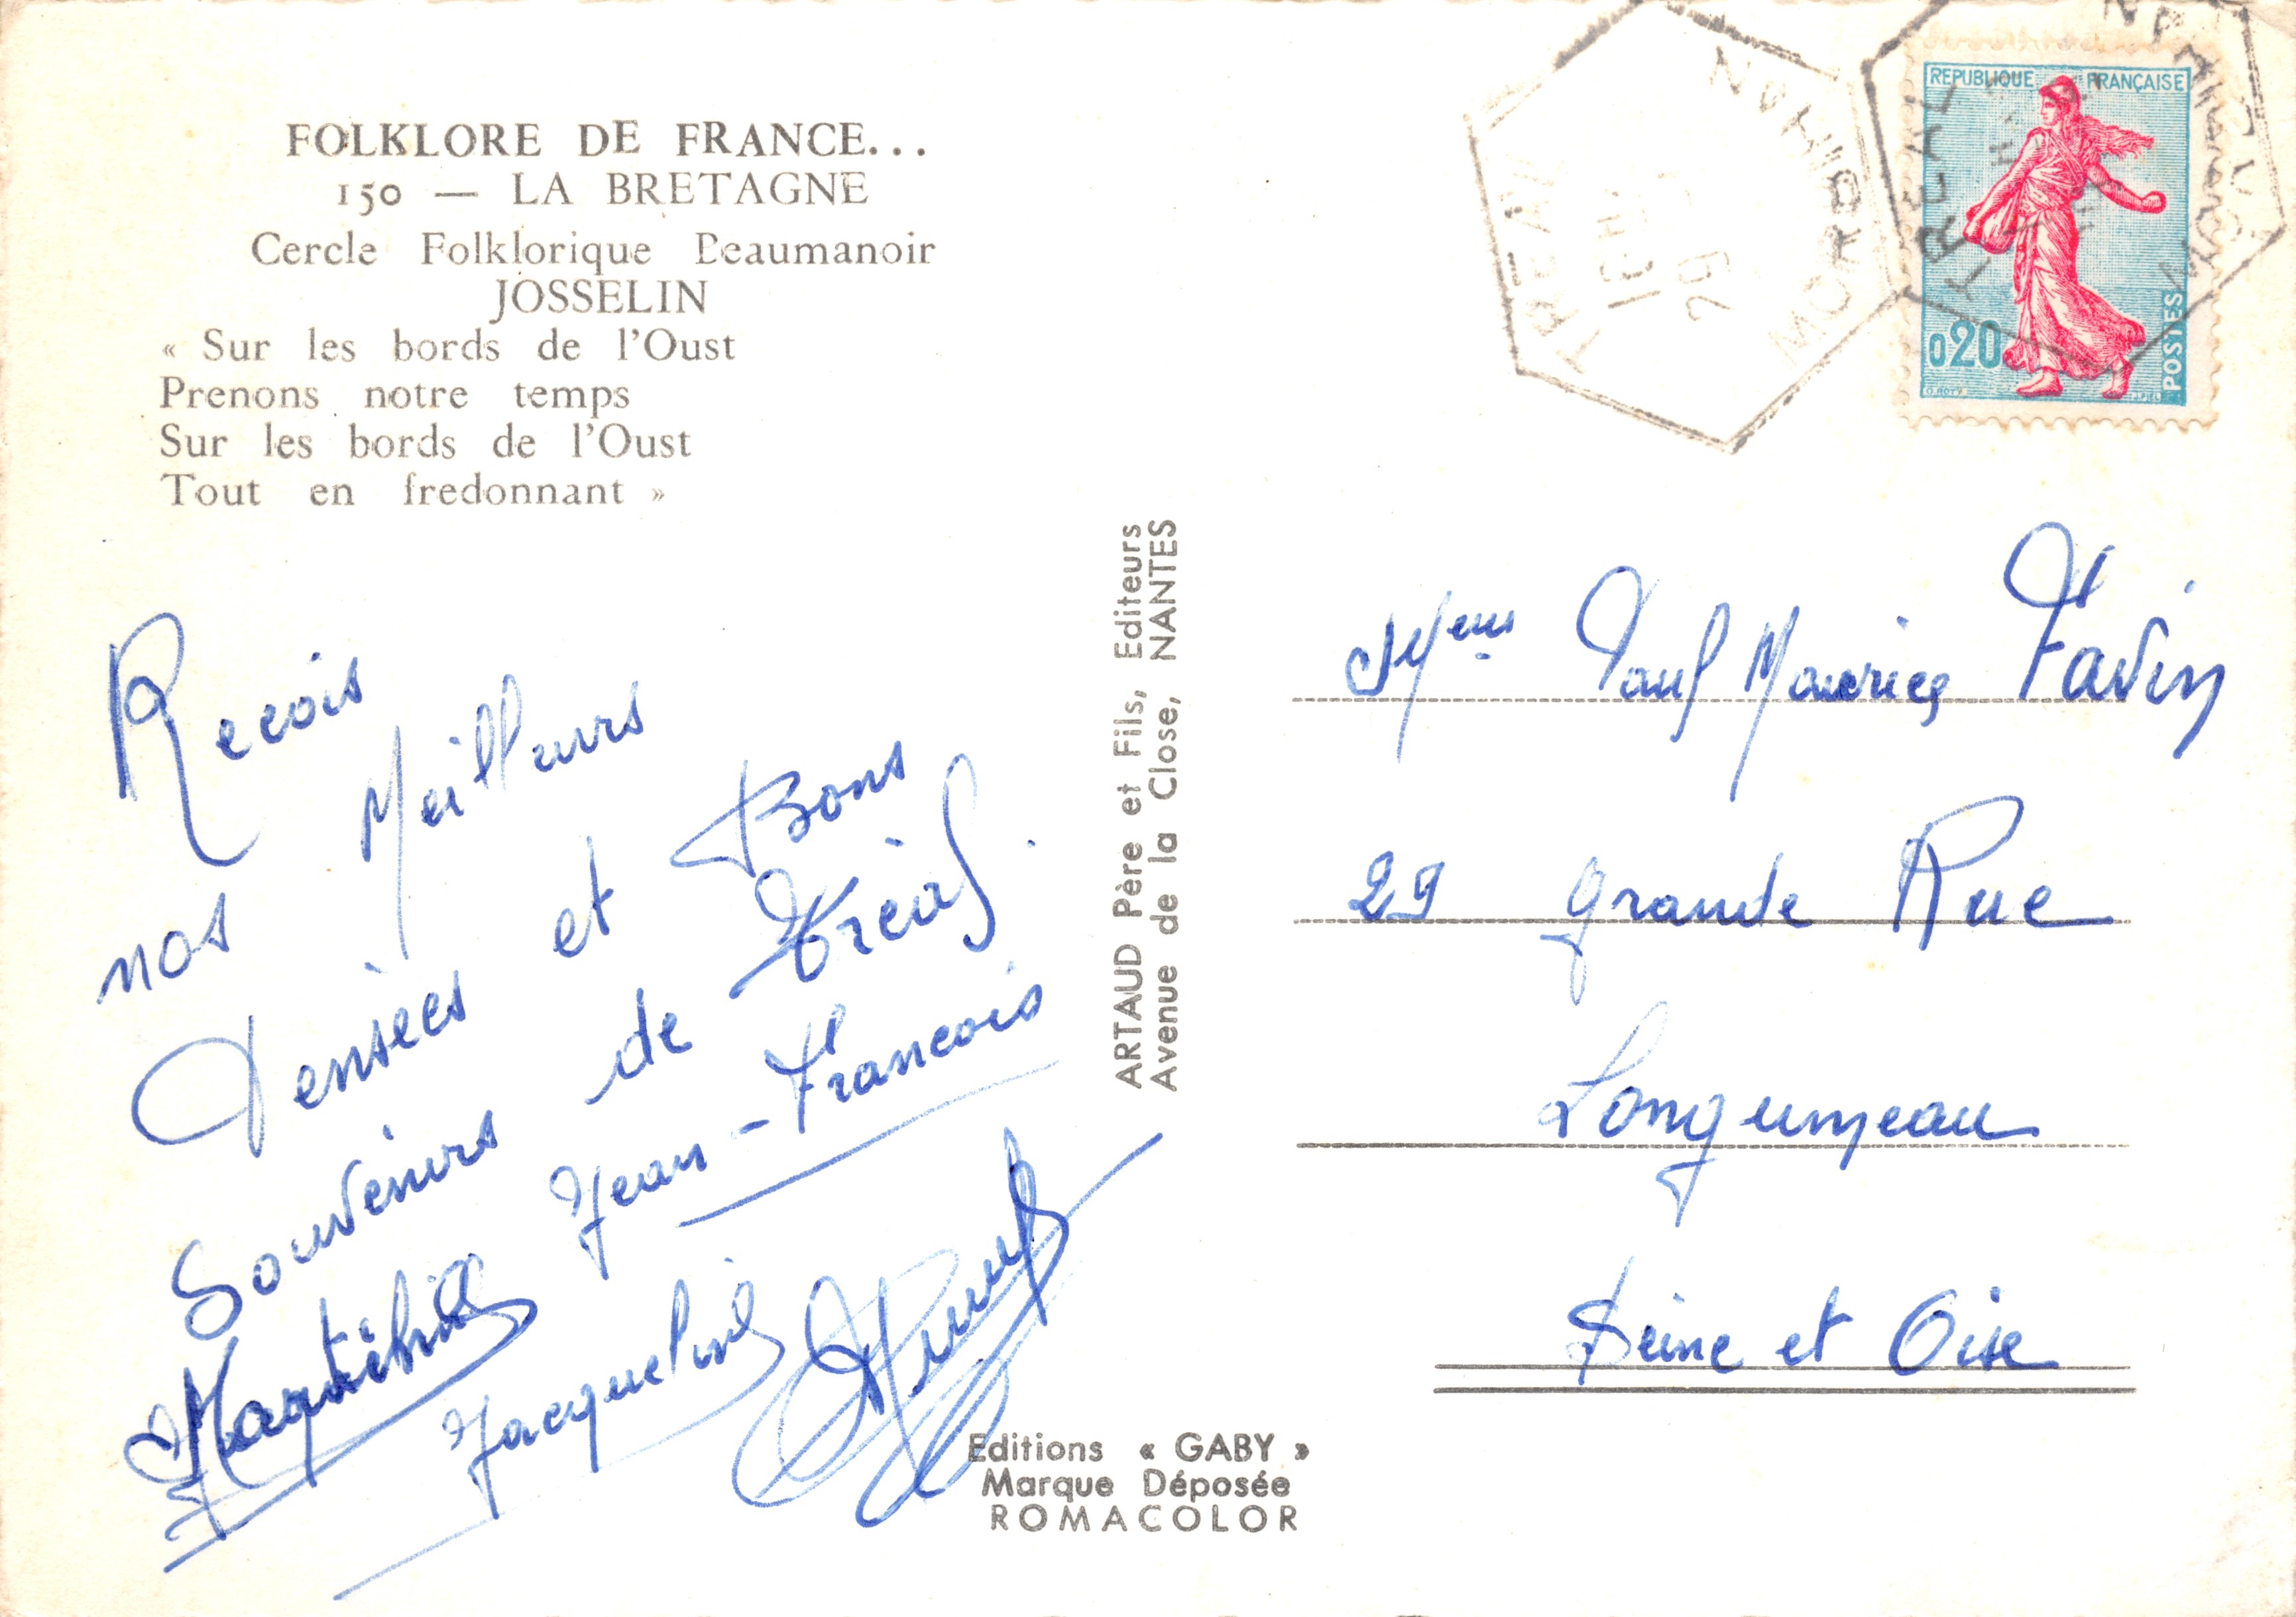 FOLKLORE DE FRANCE...
150 — LA BRETAGNE
Cercle Folklorique Beaumanoir
JOSSELIN
« Sur les bords de l'Oust
Prenons notre temps
Sur les bords de l'Oust
Tout en fredonnant »
Recois
nos Meilleurs
Pensées et Bons
Souvenirs de Tréal
Jean-Francois
Jacqueline
ARTAUD Père et Fils, Editeurs
Avenue de la Close, NANTES
Editions « GABY »
Marque Déposée
ROMACOLOR
TREAL
MORBIHAN
TREAL
MORBIHAN
REPUBLIQUE FRANÇAISE
0,20
POSTES
Paul Maurice Favin
29 grande Rue
Longjumeau
Seine et Oise